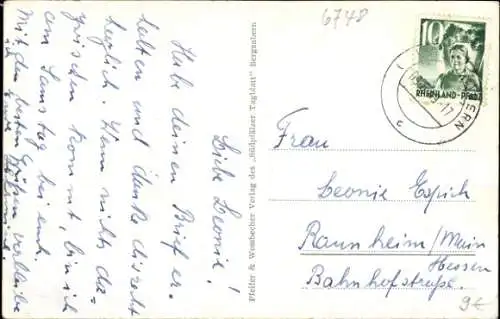 Liebe Leonie!
Habe deinen Brief er-
halten und danke diesbezl
herzlich. Wenn nichts da-
zwischen kommt, bin ich
am Samstag bei euch.
Mit den besten Grüßen verbleibe
ich
Pfeifer & Wambecher Verlag des „Südpfälzer Tagblatt" Bergzabern
6748
10
RHEINLAND-PFALZ
Frau
Leonie Espich
Raunheim/Main
Hessen
Bahnhofstraße.
9€